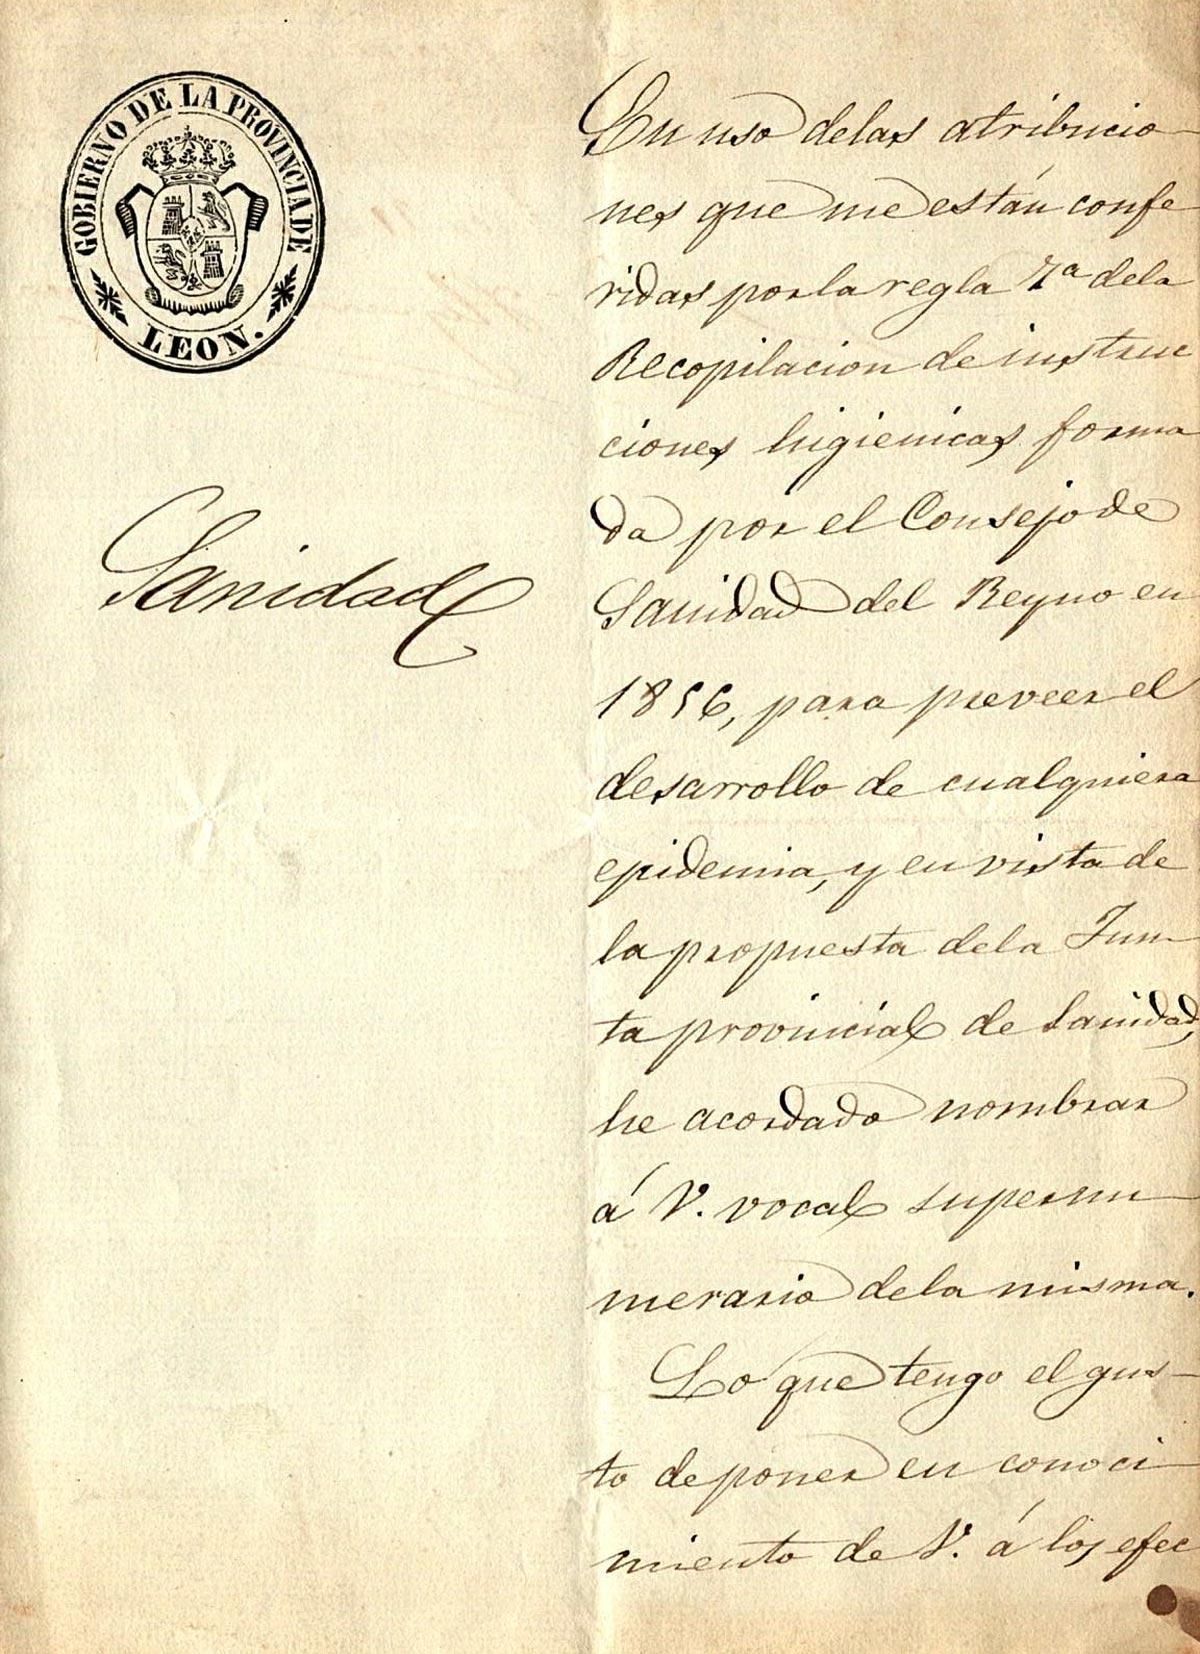 GOBIERNO DE LA PROVINCIA DE
LEON.
Sanidad
En uso de las atribucio-
nes que me están confe
ridas por la regla 7ª de la
Recopilacion de instruc
ciones higienicas forma
da por el Consejo de
Sanidad del Reyno en
1856, para preveer el
desarrollo de cualquiera
epidemia, y en vista de
la propuesta de la Jun-
ta provincial de Sanidad,
he acordado nombrar
á V. vocal supernu-
merario de la misma.
Lo que tengo el gus-
to de poner en conoci-
miento de V. á los efec